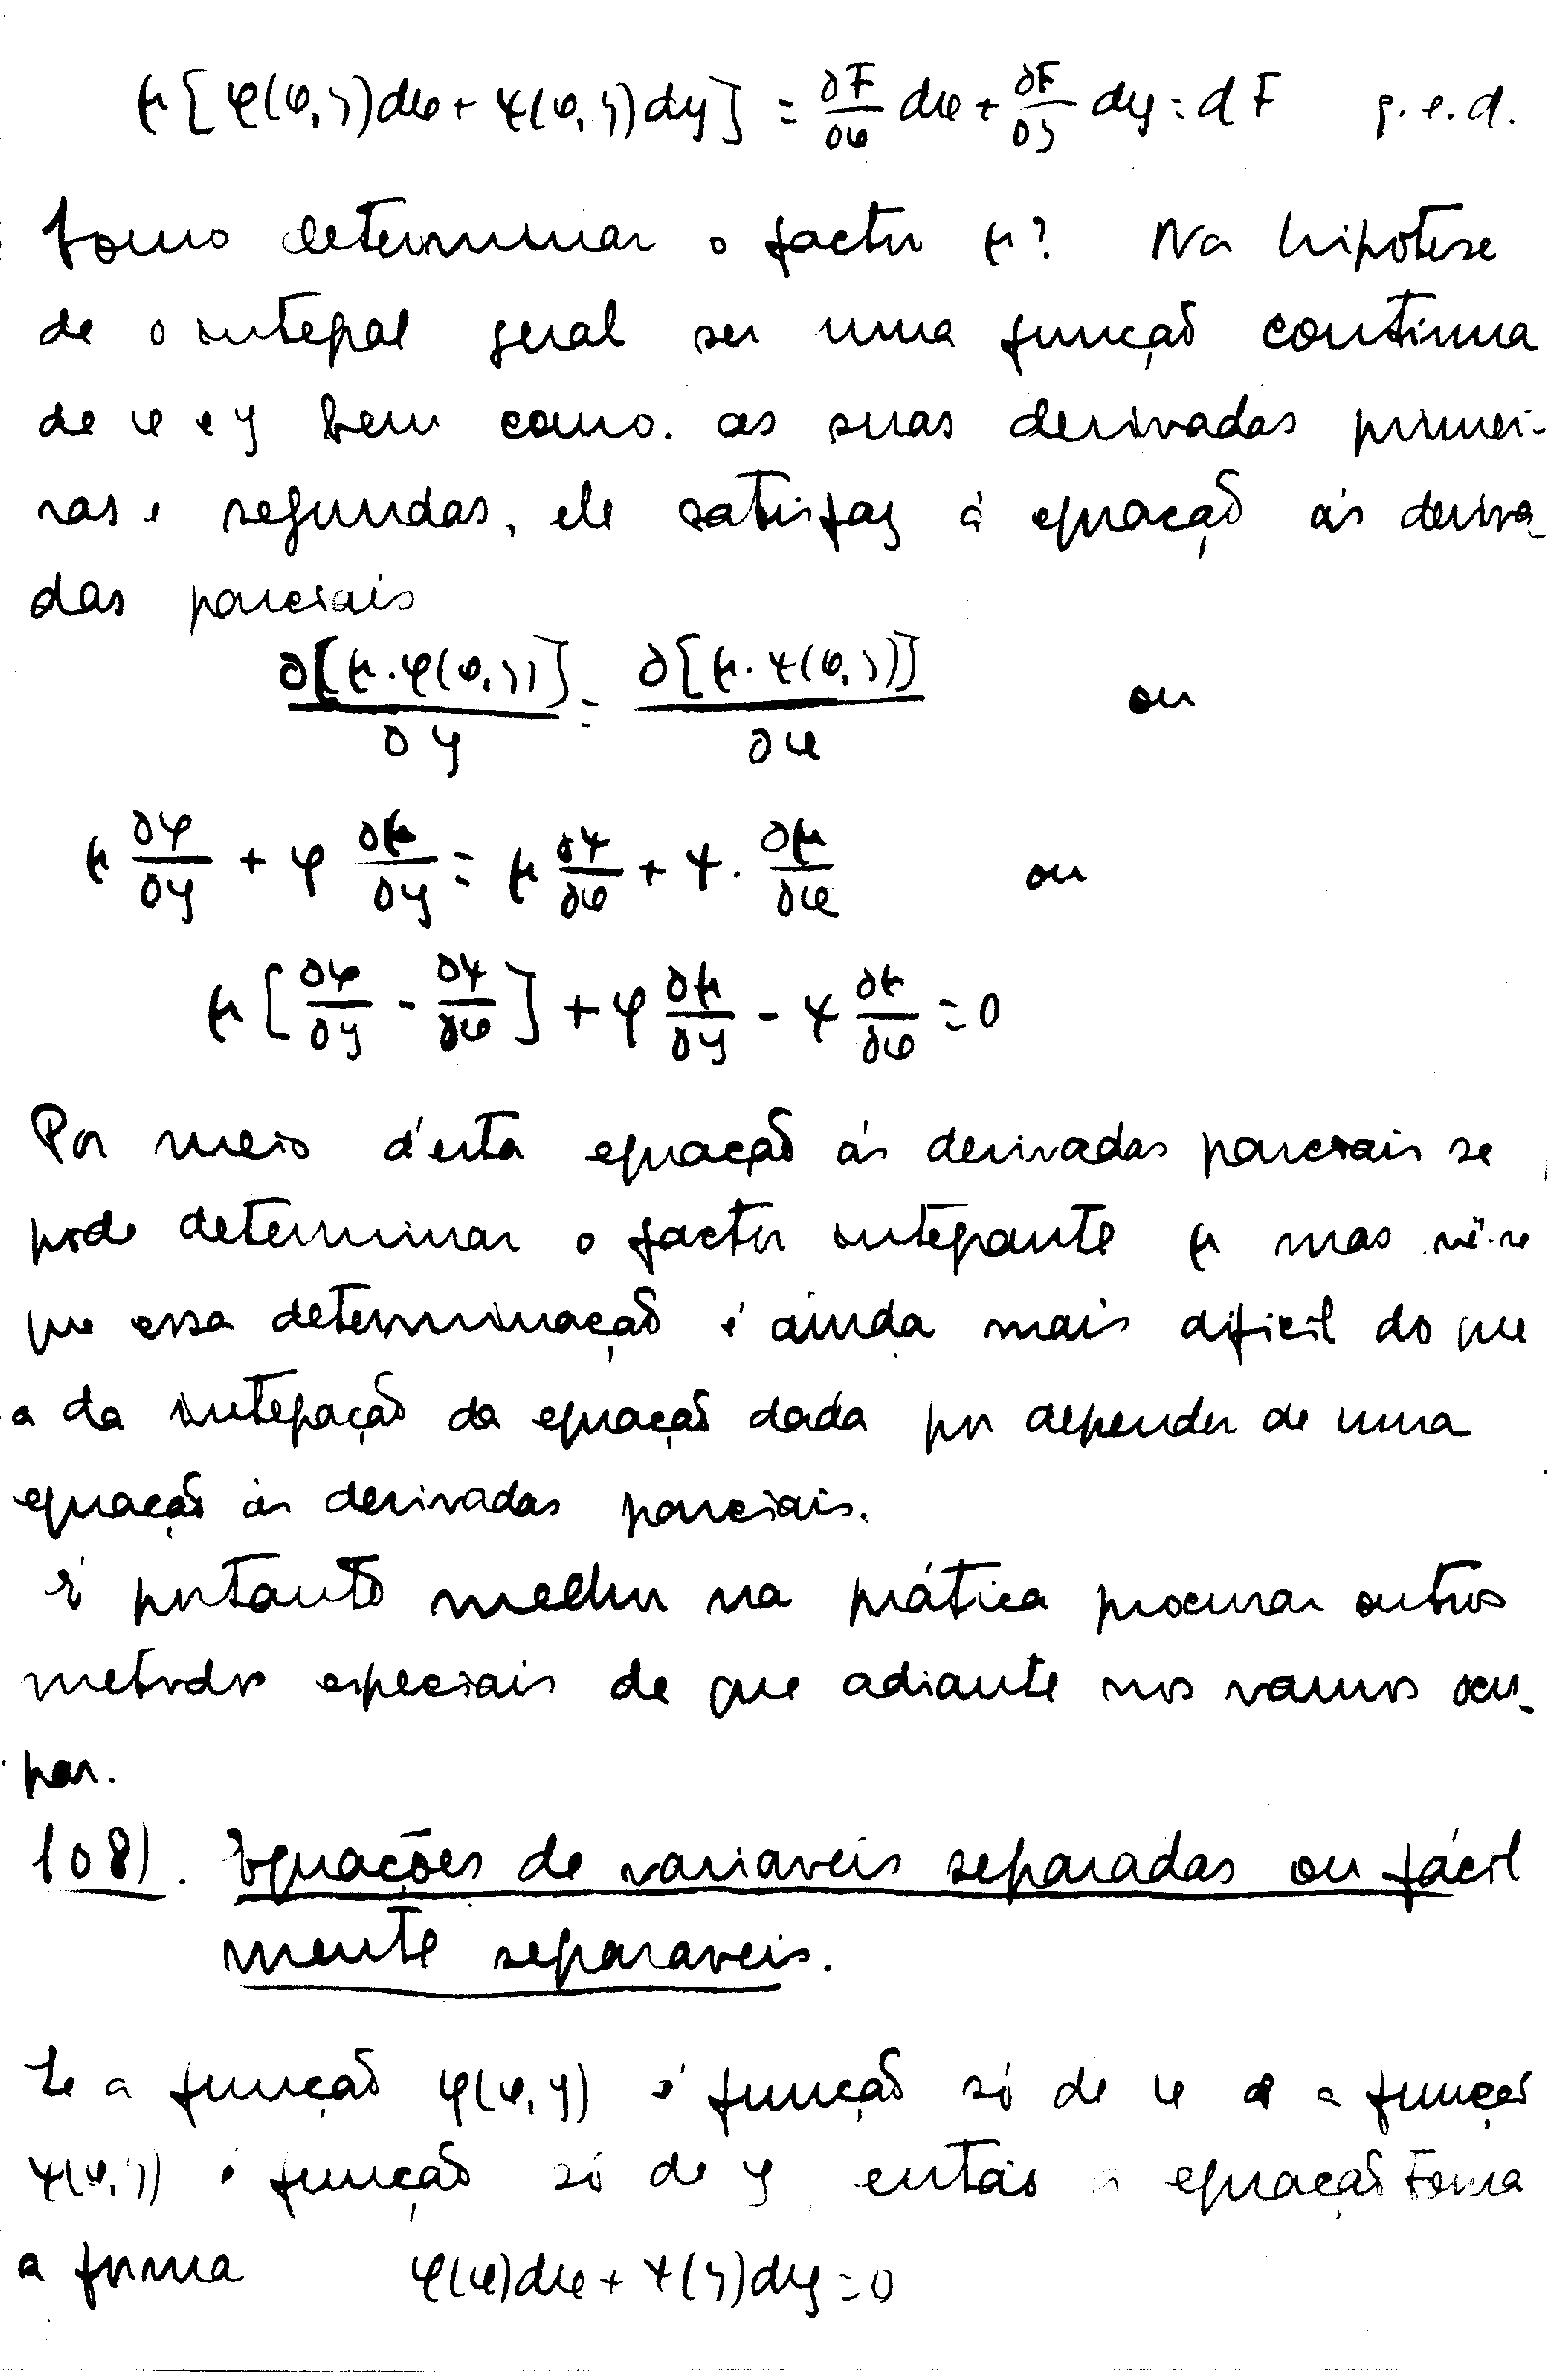 μ[φ(x,y)dx + ψ(x,y)dy] = ∂F/∂x dx + ∂F/∂y dy = dF q.e.d.
Como determinar o factor μ? Na hipotese
de o integral geral ser uma função continua
de x e y bem como. as suas derivadas primei-
ras e segundas, ele satisfaz á equação ás deriva-
das parciais
∂[μ.φ(x,y)]/∂y = ∂[μ.ψ(x,y)]/∂x ou
μ ∂φ/∂y + φ ∂μ/∂y = μ ∂ψ/∂x + ψ. ∂μ/∂x ou
μ[∂φ/∂y - ∂ψ/∂x] + φ ∂μ/∂y - ψ ∂μ/∂x = 0
Por meio d'esta equação ás derivadas parciais se
pode determinar o factor integrante μ mas vê-se
que essa determinação é ainda mais dificil do que
a da integração da equação dada por depender de uma
equação ás derivadas parciais.
É portanto melhor na prática procurar outros
metodos especiais de que adiante nos vamos ocu-
par.
108). Equações de variaveis separadas ou fácil
mente separaveis.
Se a função φ(x,y) é função só de x e a função
ψ(x,y) é função só de y então a equação toma
a forma φ(x)dx + ψ(y)dy = 0